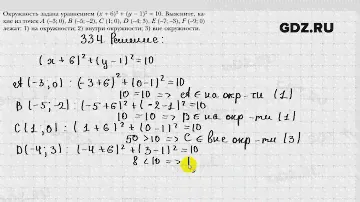 Окружность задана уравнением (x + 6)² + (y − 1)² = 10. Выясните, какие из точек A (−3; 0), B (−5; −2), C (1; 0), D (−4; 3), E (−7; −3), F (−9; 0)
лежат: 1) на окружности; 2) внутри окружности; 3) вне окружности.
GDZ.RU
334. Решение:
(x+6)²+(y-1)²=10
A(-3;0): (-3+6)²+(0-1)²=10
10=10 => A∈ на окр-ти (1)
B(-5;-2): (-5+6)²+(-2-1)²=10
10=10 => B∈ на окр-ти (1)
C(1;0): (1+6)²+(0-1)²=10
50>10 => C∈ вне окр-ти (3)
D(-4;3): (-4+6)²+(3-1)²=10
8<10 =>